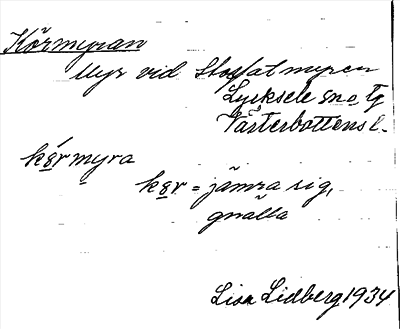 Körmyran
Myr vid Stoffatmyren
Lycksele sn o Tg
Västerbottens l.
körmyra
kör = jämra sig,
gnälla
Lisa Lidberg 1934